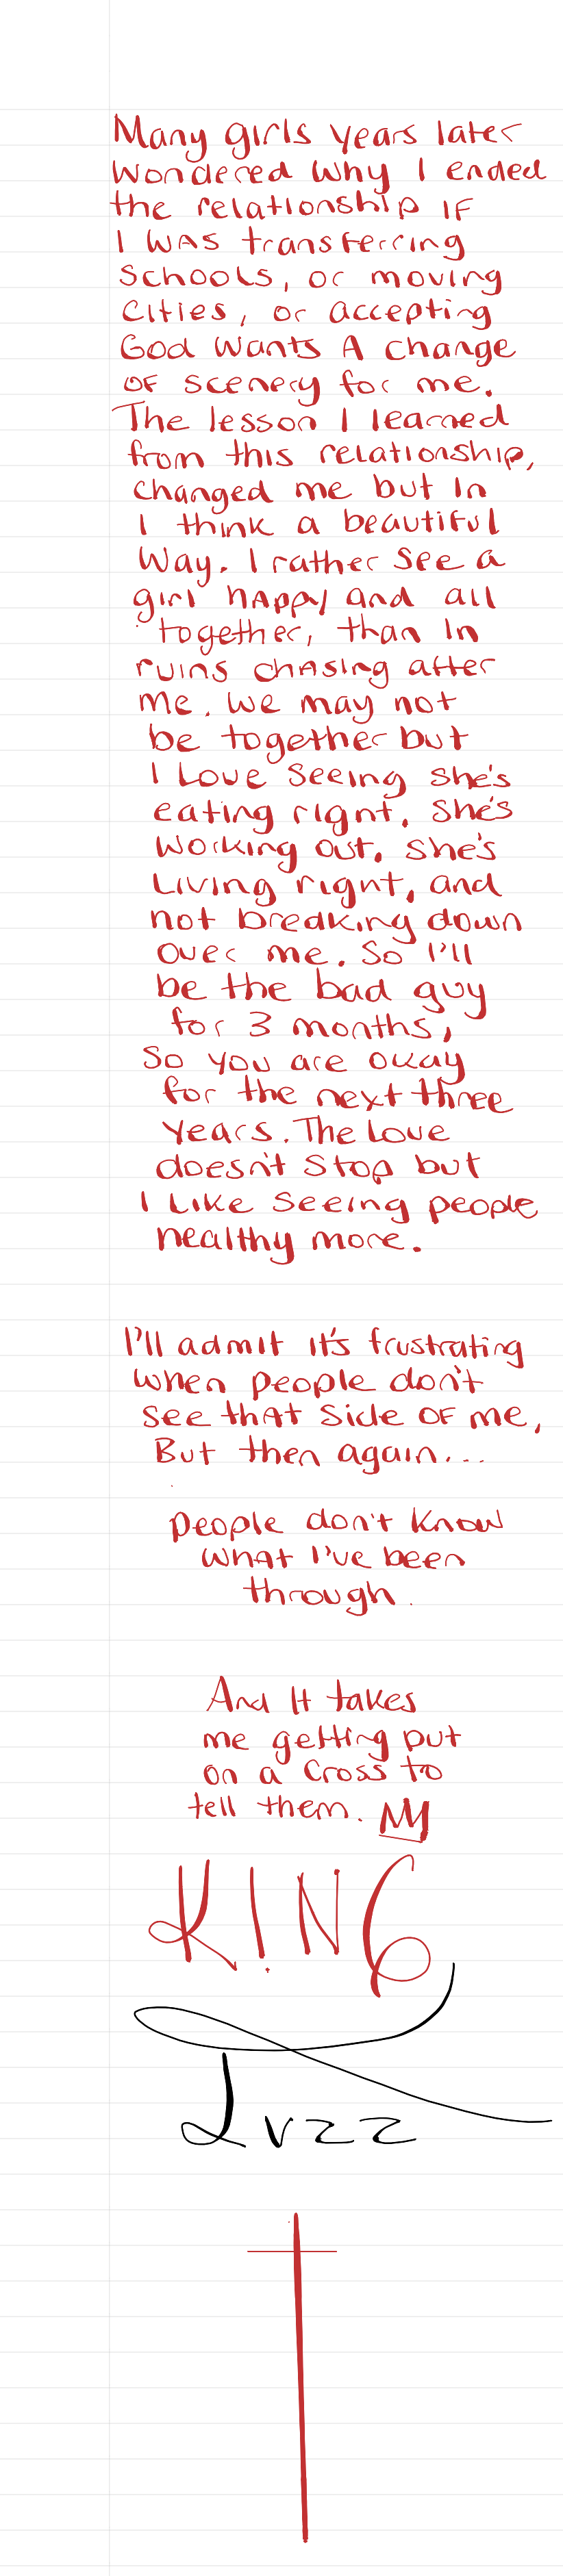 Many girls years later
wondered why I ended
the relationship IF
I was transferring
schools, or moving
cities, or accepting
God wants A change
OF scenery for me.
The lesson I learned
from this relationship,
changed me but in
I think a beautiful
way. I rather see a
girl happy and all
together, than in
ruins chasing after
me. We may not
be together but
I Love seeing she's
eating right. she's
working out. she's
Living right, and
not breaking down
over me. So I'll
be the bad guy
for 3 months,
so you are okay
for the next three
years. The Love
doesn't stop but
I Like seeing people
healthy more.
I'll admit it's frustrating
when people don't
see that side OF me,
But then again...
people don't know
what I've been
through.
And It takes
me getting put
on a cross to
tell them.
K!NG